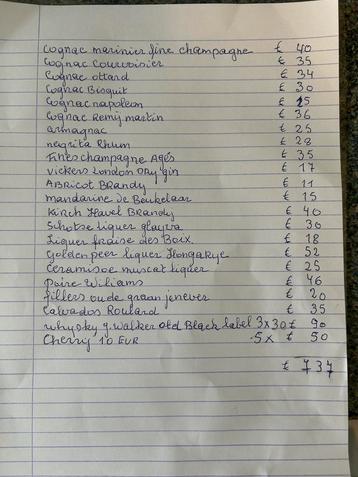 Cognac marinier fine champagne € 40
Cognac Courvoisier € 35
Cognac ottard € 34
Cognac Bisquit € 30
Cognac napoleon € 25
Cognac Remy martin € 36
armagnac € 25
negrita Rhum € 28
Fines champagne Agés € 35
Vickers London Dry gin € 17
ABricot BRandy € 11
mandarine de Beukelaar € 15
Kirch Havel Brandy € 40
Schotse liquer glayva € 30
Liquer fraise des Boix € 18
Golden peer liquer Hongarye € 52
Ceramisoe muscat liquer € 25
Poire Wiliams € 46
fillers oude graan jenever € 20
Calvados Roulard € 35
whysky J. Walker old Black label 3x30 € 90
Cherry 10 EUR -5x € 50
€ 737